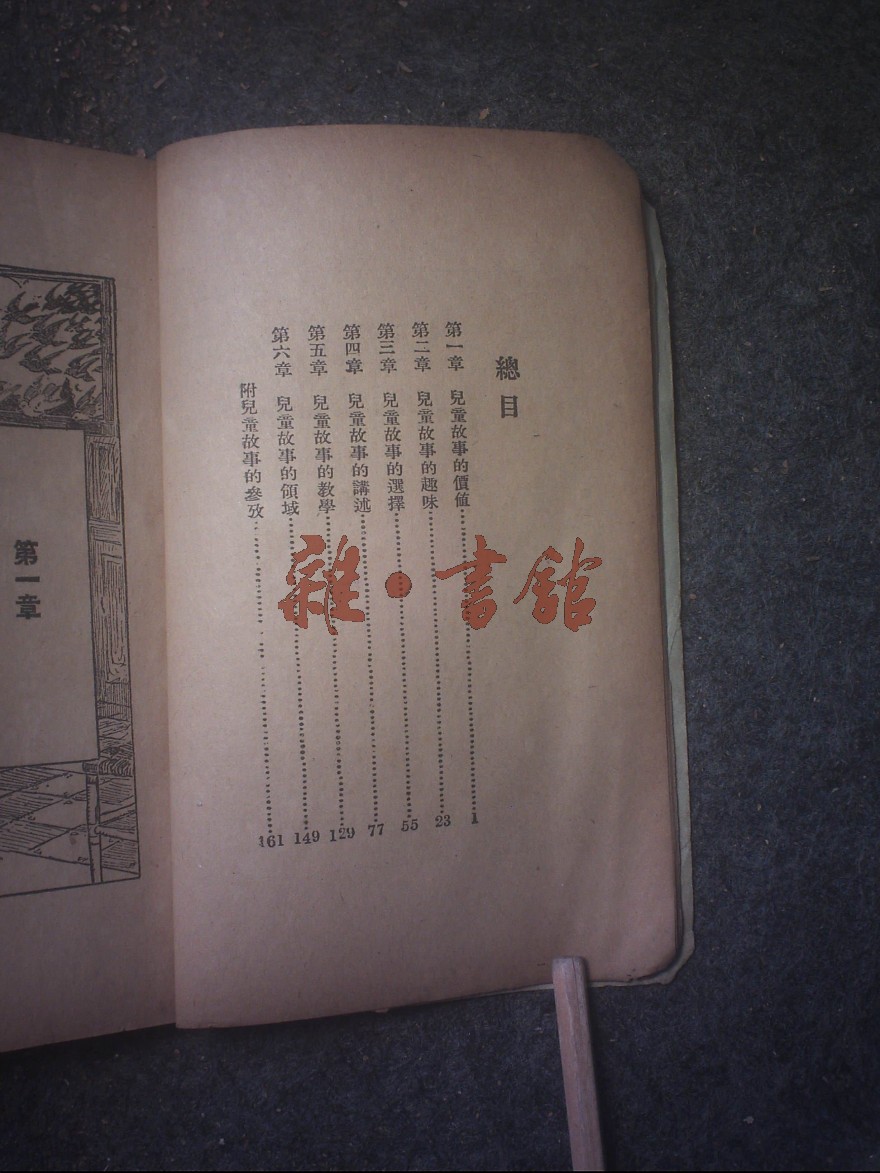 總目
第一章 兒童故事的價值 1
第二章 兒童故事的趣味 23
第三章 兒童故事的選擇 55
第四章 兒童故事的講述 77
第五章 兒童故事的教學 129
第六章 兒童故事的領域 149
附兒童故事的參攷 161
第一章
雜·書館